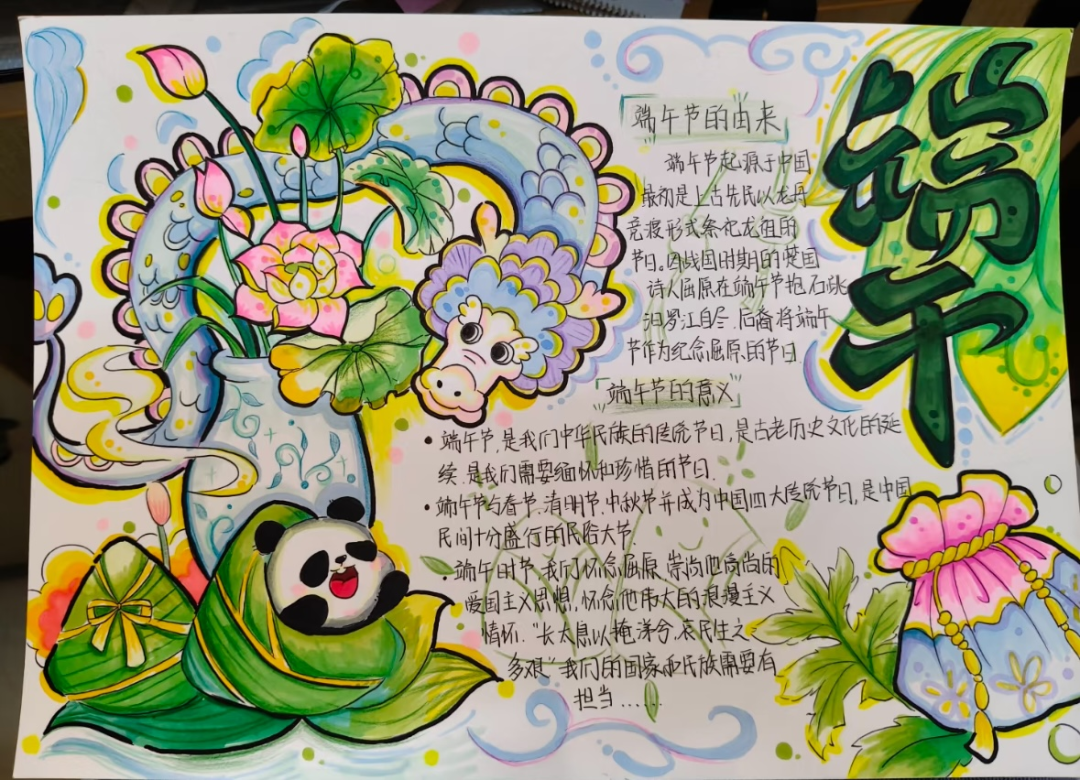 端午
端午节的由来
端午节起源于中国
最初是上古先民以龙舟
竞渡形式祭祀龙祖的
节日。因战国时期的楚国
诗人屈原在端午节抱石跳
汨罗江自尽.后裔将端午
节作为纪念屈原的节日
端午节的意义
• 端午节,是我们中华民族的传统节日,是古老历史文化的延
续.是我们需要缅怀和珍惜的节日
• 端午节与春节.清明节.中秋节并成为中国四大传统节日,是中国
民间十分盛行的民俗大节
• 端午时节 我们怀念屈原 崇尚他高尚的
爱国主义思想,怀念他伟大的浪漫主义
情怀."长太息以掩涕兮,哀民生之
多艰"我们的国家和民族需要有
担当……